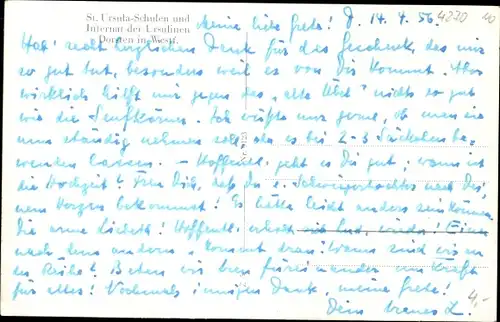 St. Ursula-Schulen und
Internat der Ursulinen
Dorsten in Westf.
meine liebe Grete! D. 14. 4. 56
4270
Hab' recht herzlichen Dank für das Geschenk, das mir
so gut tut, besonders weil es von Dir kommt. Aber
wirklich hilft mir gegen das „alte Übel" nichts so gut
wie die Senfkörner. Ich wüßte nur gerne, ob man sie
nun ständig nehmen soll oder es bei 2-3 Säckchen be-
wenden lassen. – Hoffentl. geht es Dir gut; wann ist
die Hochzeit? Freu Dich, daß Du e. Schwiegertochter nach Dei-
nem Herzen bekommst! Es hätte leicht anders sein können
die arme Lisbeth! Hoffentl. erholt sie sich wieder! Eine
nach dem andern kommt dran! Wann sind wir an
der Reihe? Beten wir brav füreinander um Kraft
für alles! Nochmals innigen Dank, meine Grete!
Dein treues L.
4,-